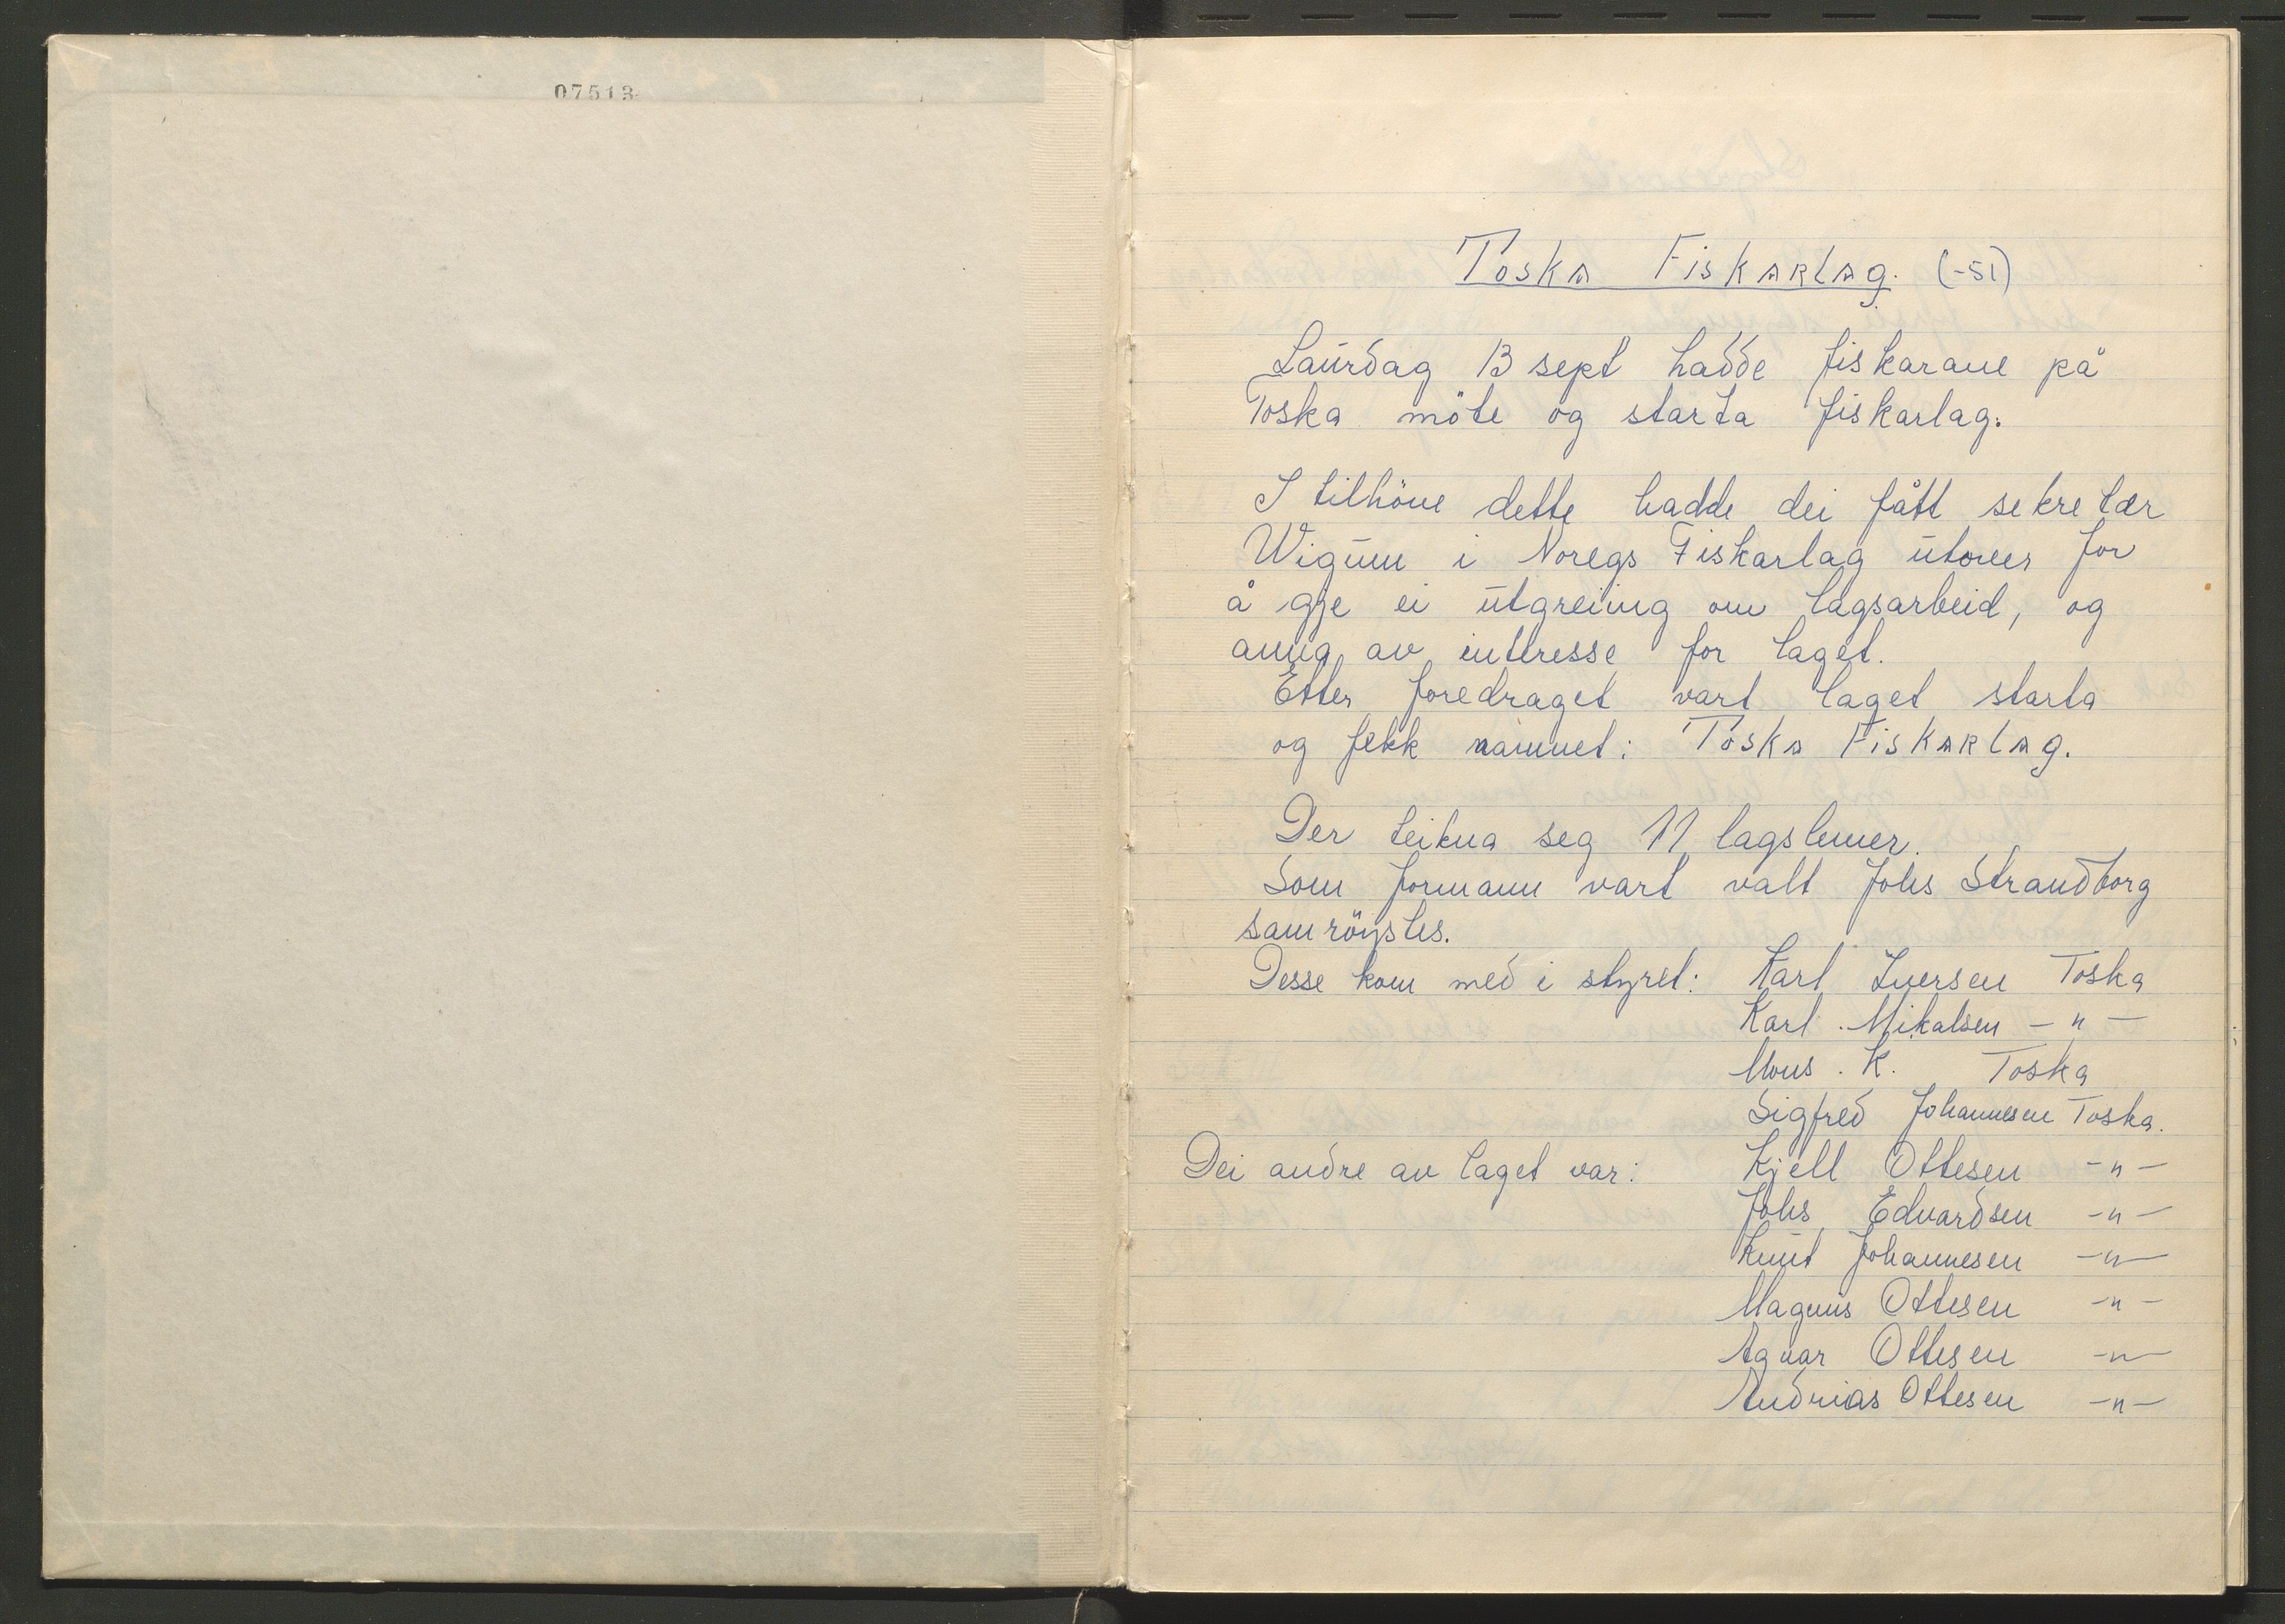 07513
Toska Fiskarlag. (-51)
Laurdag 13 sept hadde fiskarane på
Toska möte og starta fiskarlag.
I tilhöve dette hadde dei fått sekretær
Wigum i Noregs Fiskarlag utover for
å gje ei utgreiing om lagsarbeid, og
anna av interesse for laget.
Etter foredraget vart laget starta
og fekk namnet: Toska Fiskarlag.
Der teikna seg 11 lagslemer.
Som formann vart valt Johs Strandborg
samröystes.
Desse kom med i styret: Karl Iversen Toska
Karl. Mikalsen -"-
Mons. K. Toska
Sigfred Johannesen Toska.
Dei andre av laget var: Kjell Ottesen -"-
Johs Edvardsen -"-
Knut Johannesen -"-
Magnus Ottesen -"-
Agnar Ottesen -"-
Andrias Ottesen -"-